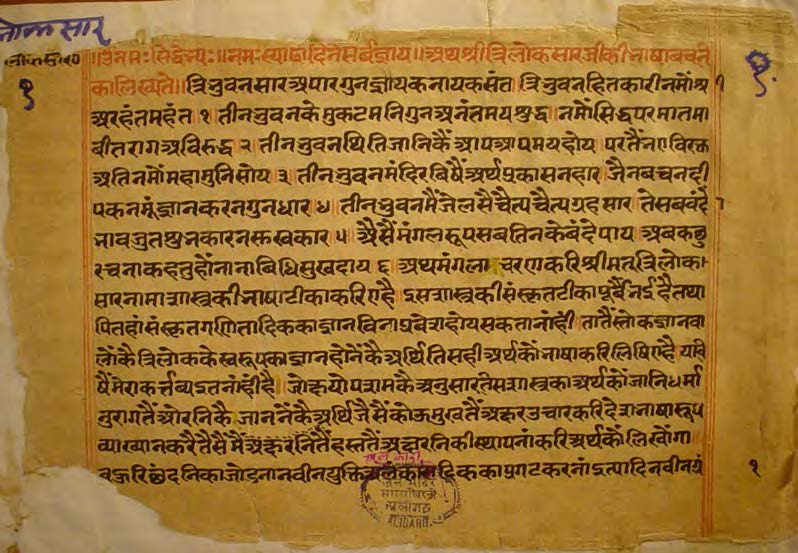 लोकसार
१
१
॥उँनमः सिद्धेभ्यः॥नमः स्याद्वादिने सर्वज्ञाय॥अथ श्री त्रिलोकसार जीकी भाषा बचन
का लिख्यते॥ त्रिभुवनसार अपारगुन ज्ञायक नायक संत त्रिभुवन हितकारी नमौं श्री
अरहंत महंत १ तीन भुवन के मुकट मनि गुन अनंतमय शुद्ध नमौं सिद्ध परमातमा
बीतराग अविरुद्ध २ तीन भुवन थिति जानिकैं आप आपमय होय परतैं भए विरक्त
अति नमौं महामुनि सोय ३ तीन भुवन मंदिर विषैं अर्थ प्रकासनहार जैन बचन दी
पक नमूं ज्ञान करन गुनधार ४ तीन भुवन मैं जे लसैं चैत्य चैत्यग्रह सार ते सब बंदौं
भावजुत शुभ कारन सुखकार ५ अैसैं मंगल रूप सब तिनके बंदे पाय अब कछु
रचना कहतु हौं नाना बिधि सुखदाय ६ अथ मंगलाचरण करि श्रीमत् त्रिलोक
सार नामा शास्त्र की भाषा टीका करिए है इस शास्त्र की संस्कृत टीका पूर्वैं भई है तथा
पि तहां संस्कृत गणितादिक का ज्ञान विना प्रवेश होय सकता नांही तातैं स्तोक ज्ञान वा
लौं कै त्रिलोक के स्वरूप का ज्ञान होनें कै अर्थि तिसही अर्थ कौं भाषा करि लिषिए है या वि
षैं मेरा कर्त्तव्य इतनांही है जो क्षयोपशम कै अनुसारि इस शास्त्र का अर्थ कौं जानि धर्मा
नुराग तैं औरनि कै जाननें कै अर्थि जैसैं कोऊ मुख तैं अक्षर उचार करि देश भाषा रूप
व्याख्यान करै तैसैं मैं अक्षरनि तैं हस्त तैं अक्षरनि की स्थापना करि अर्थ कौं लिखौंगा
बहुरि छंदनि का जोडना नवीन युक्ति अलंकारादिक का प्रगट करनां इत्यादि नवीन ग्रं
१